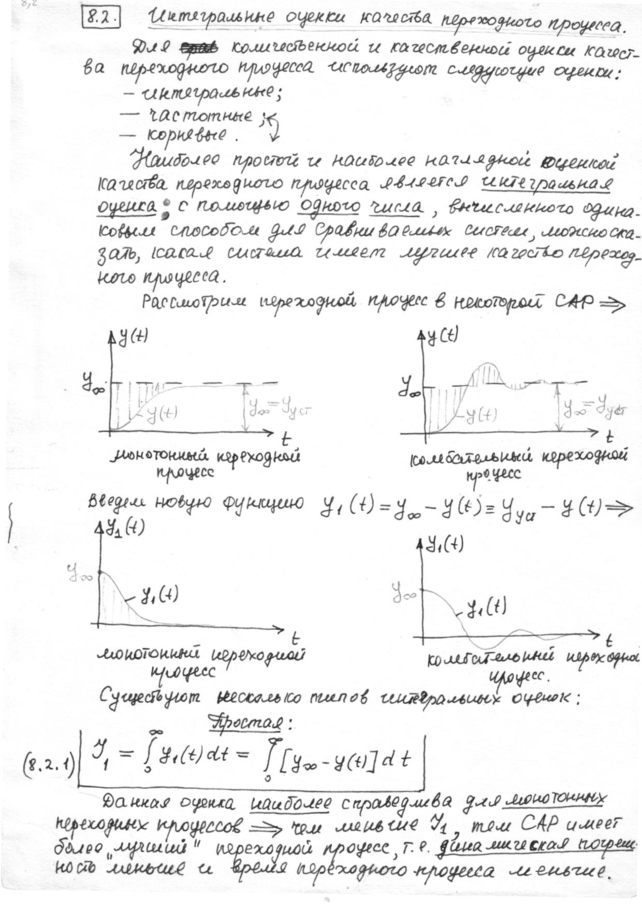 8.2. Интегральные оценки качества переходного процесса.
Для количественной и качественной оценки качест-
ва переходного процесса используют следующие оценки:
– интегральные;
– частотные;
– корневые.
Наиболее простой и наиболее наглядной оценкой
качества переходного процесса является интегральная
оценка: с помощью одного числа, вычисленного одина-
ковым способом для сравниваемых систем, можно ска-
зать, какая система имеет лучшее качество переход-
ного процесса.
Рассмотрим переходной процесс в некоторой САР ⇒
y(t)
y∞
y(t)
y∞ = yуст
t
монотонный переходной
процесс
y(t)
y∞
y(t)
y∞ = yуст
t
колебательный переходной
процесс
Введем новую функцию y₁(t) = y∞ – y(t) ≡ yуст – y(t) ⇒
y₁(t)
y∞
y₁(t)
t
монотонный переходной
процесс
y₁(t)
y∞
y₁(t)
t
колебательный переходной
процесс.
Существуют несколько типов интегральных оценок:
Простая:
(8.2.1) J₁ = ∫₀^∞ y₁(t) dt = ∫₀^∞ [y∞ – y(t)] dt
Данная оценка наиболее справедлива для монотонных
переходных процессов ⇒ чем меньше J₁, тем САР имеет
более "лучший" переходной процесс, т.е. динамическая погреш-
ность меньше и время переходного процесса меньше.